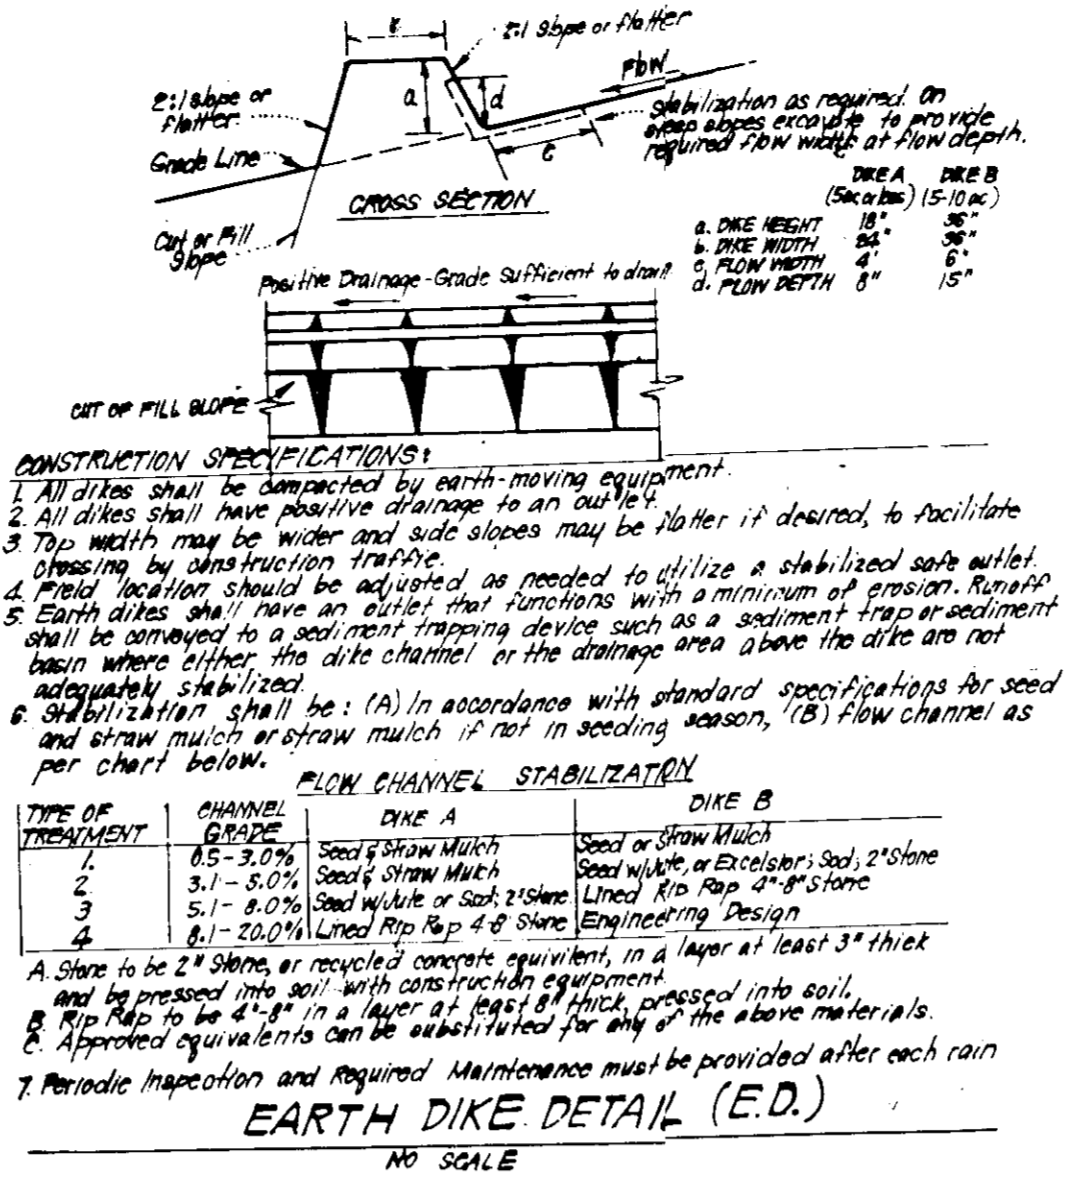 b
2:1 Slope or flatter
Flow
2:1 slope or
flatter
a
d
stabilization as required. On
steep slopes excavate to provide
required flow width at flow depth.
Grade Line
c
CROSS SECTION
Cut or Fill
Slope
DIKE A DIKE B
(5ac or less) (5-10 ac)
a. DIKE HEIGHT 18" 36"
b. DIKE WIDTH 24" 36"
c. FLOW WIDTH 4' 6'
d. FLOW DEPTH 8" 15"
Positive Drainage-Grade Sufficient to drain
CUT OF FILL SLOPE
CONSTRUCTION SPECIFICATIONS:
1. All dikes shall be compacted by earth-moving equipment.
2. All dikes shall have positive drainage to an outlet.
3. Top width may be wider and side slopes may be flatter if desired, to facilitate
crossing by construction traffic.
4. Field location should be adjusted as needed to utilize a stabilized safe outlet.
5. Earth dikes shall have an outlet that functions with a minimum of erosion. Runoff
shall be conveyed to a sediment trapping device such as a sediment trap or sediment
basin where either the dike channel or the drainage area above the dike are not
adequately stabilized.
6. Stabilization shall be: (A) In accordance with standard specifications for seed
and straw mulch or straw mulch if not in seeding season, (B) flow channel as
per chart below.
FLOW CHANNEL STABILIZATION
TYPE OF TREATMENT CHANNEL GRADE DIKE A DIKE B
1. 0.5-3.0% Seed & Straw Mulch Seed or Straw Mulch
2 3.1-5.0% Seed & Straw Mulch Seed w/Jute, or Excelsior; Sod; 2" Stone
3 5.1-8.0% Seed w/Jute or Sod; 2" Stone Lined Rip Rap 4"-8" Stone
4 8.1-20.0% Lined Rip Rap 4-8" Stone Engineering Design
A. Stone to be 2" Stone, or recycled concrete equivilent, in a layer at least 3" thick
and be pressed into soil with construction equipment.
B. Rip Rap to be 4"-8" in a layer at least 8" thick, pressed into soil.
C. Approved equivalents can be substituted for any of the above materials.
7. Periodic Inspection and Required Maintenance must be provided after each rain
EARTH DIKE DETAIL (E.D.)
NO SCALE